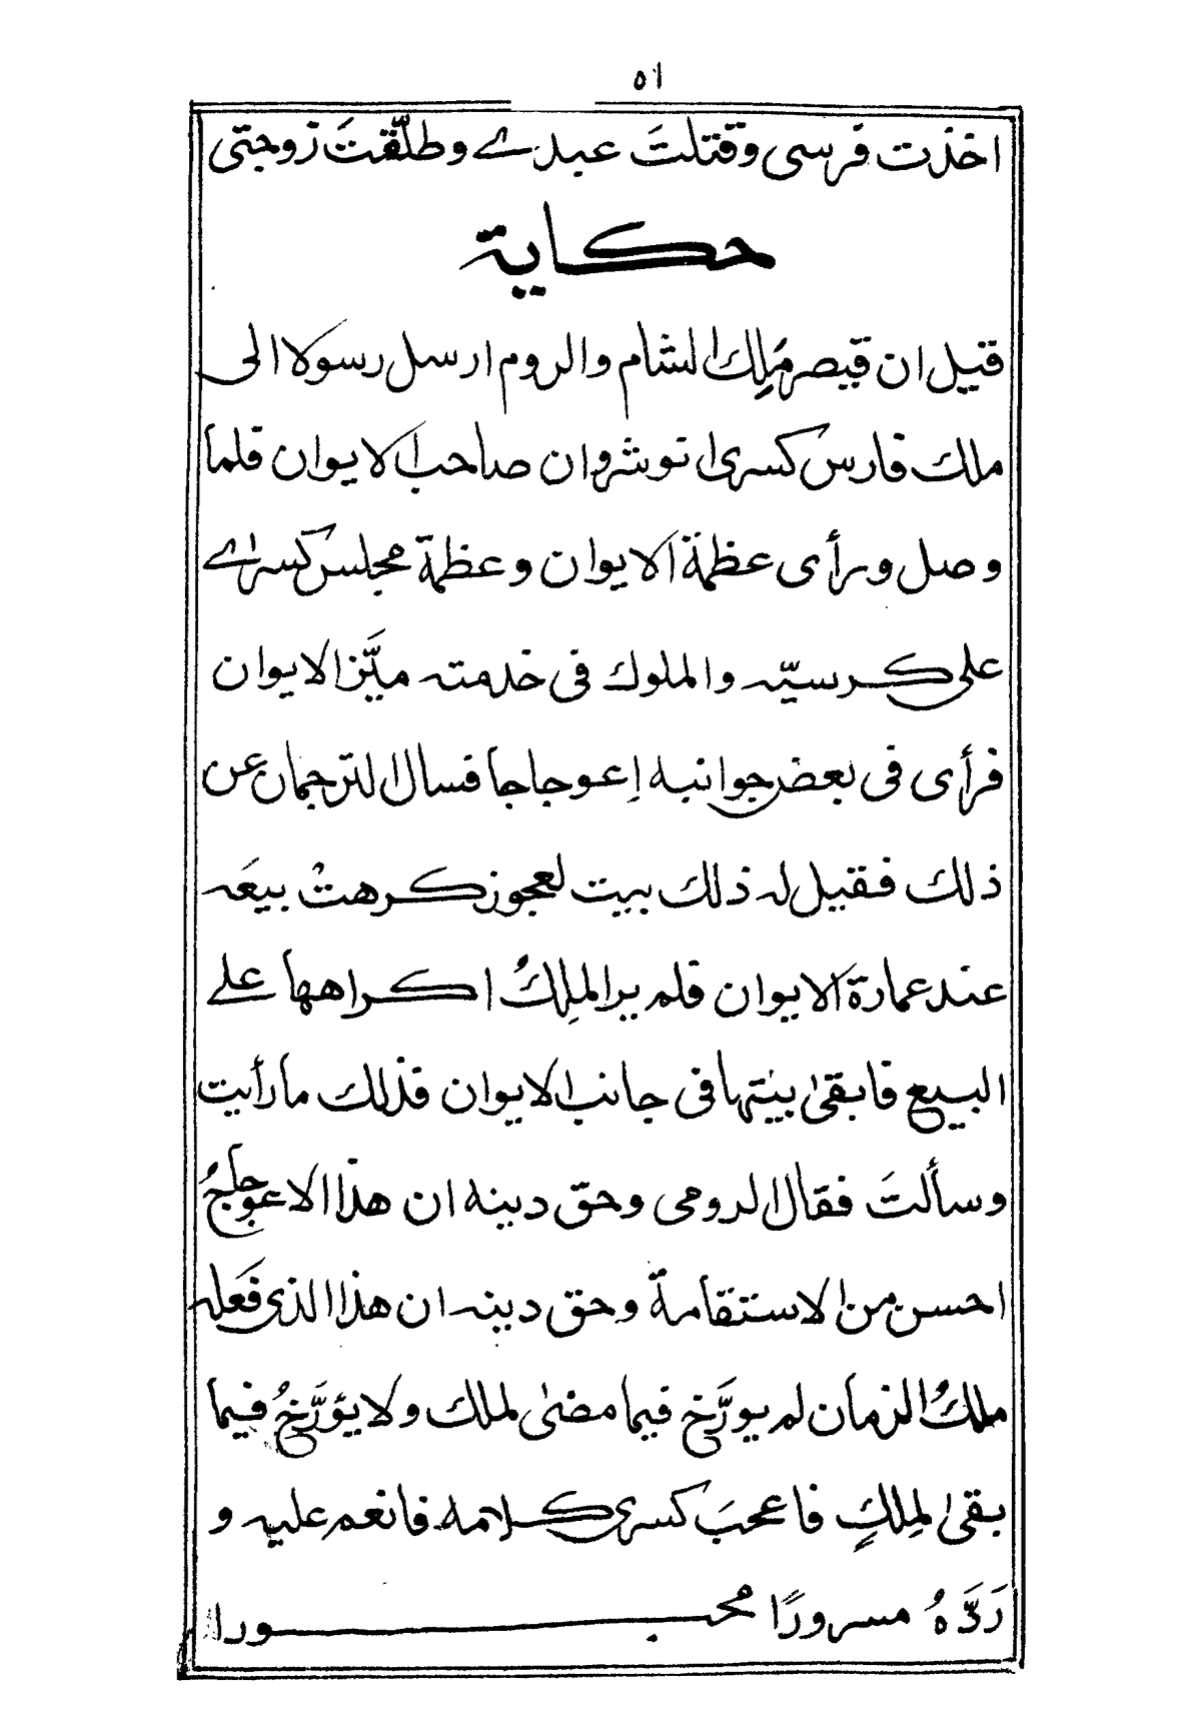 ٥١
اخذت فرسى وقتلتَ عبدے وطلّقتَ زوجتى
حكاية
قيل ان قيصر مَلِك الشام والروم ارسل رسولا الى
ملك فارس كسرى انوشروان صاحب الايوان فلما
وصل ورأى عظمة الايوان وعظمة مجلس كسراے
على كرسيّه والملوك فى خدمته ميَّز الايوان
فرأى فى بعض جوانبه إعوجاجا فسال الترجمان عن
ذلك فقيل له ذلك بيت لعجوز كرهتْ بيعَه
عند عمارة الايوان فلم ير الملِكُ اكراهها علے
البيع فابقىٰ بيتها فى جانب الايوان فذلك ما رأيت
وسألتَ فقال الرومى وحقّ دينه ان هذا الاعوجاجُ
احسن من الاستقامة وحق دينه ان هذا الذى فَعَله
ملكُ الزمان لم يورَّخ فيما مضىٰ لملك ولا يؤرَّخُ فيما
بقىٰ لملِكٍ فاعجبَ كسرى كلامه فانعم عليه و
رَدَّهُ مسرورًا محبورا